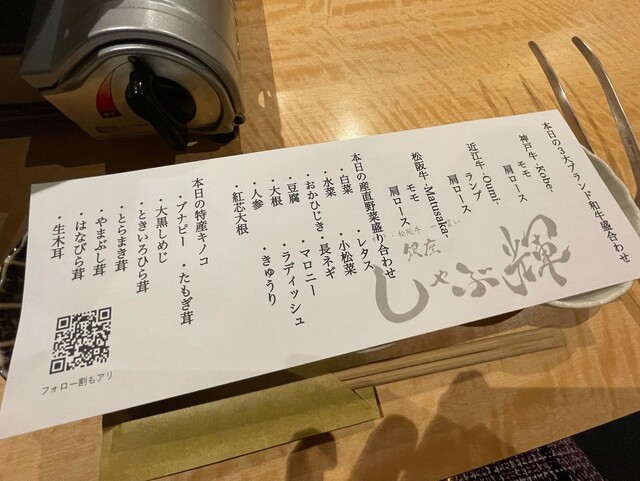 本日の３大ブランド和牛盛合わせ
神戸牛 -Kobe-
モモ　肩ロース
近江牛 -Oumi-
ランプ　肩ロース
松阪牛 -Matusaka-
モモ　肩ロース
本日の産直野菜盛り合わせ
・白菜　・レタス
・水菜　・小松菜
・おかひじき・長ネギ
・豆腐　・マロニー
・大根　・ラディッシュ
・人参　・きゅうり
・紅芯大根
本日の特産キノコ
・ブナピー　・たもぎ茸
・大黒しめじ
・ときいろひら茸
・とらまき茸
・やまぶし茸
・はなびら茸
・生木耳
松阪牛
銀座
しゃぶ輝
フォロー割もアリ